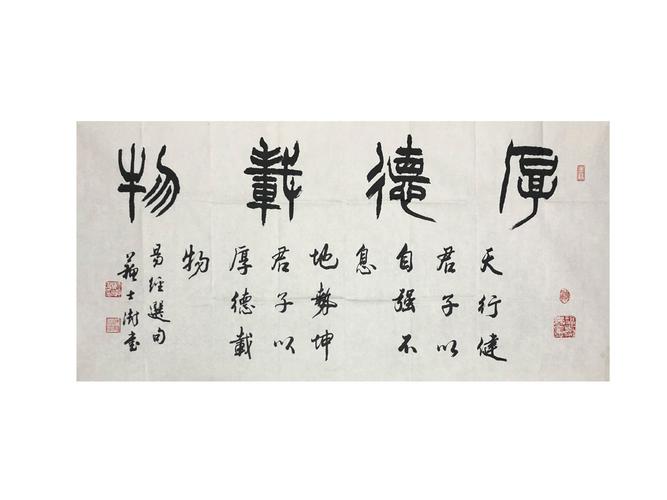 厚德載物
天行健
君子以
自强不
息
地勢坤
君子以
厚德載
物
易经選句
蘇士澍书